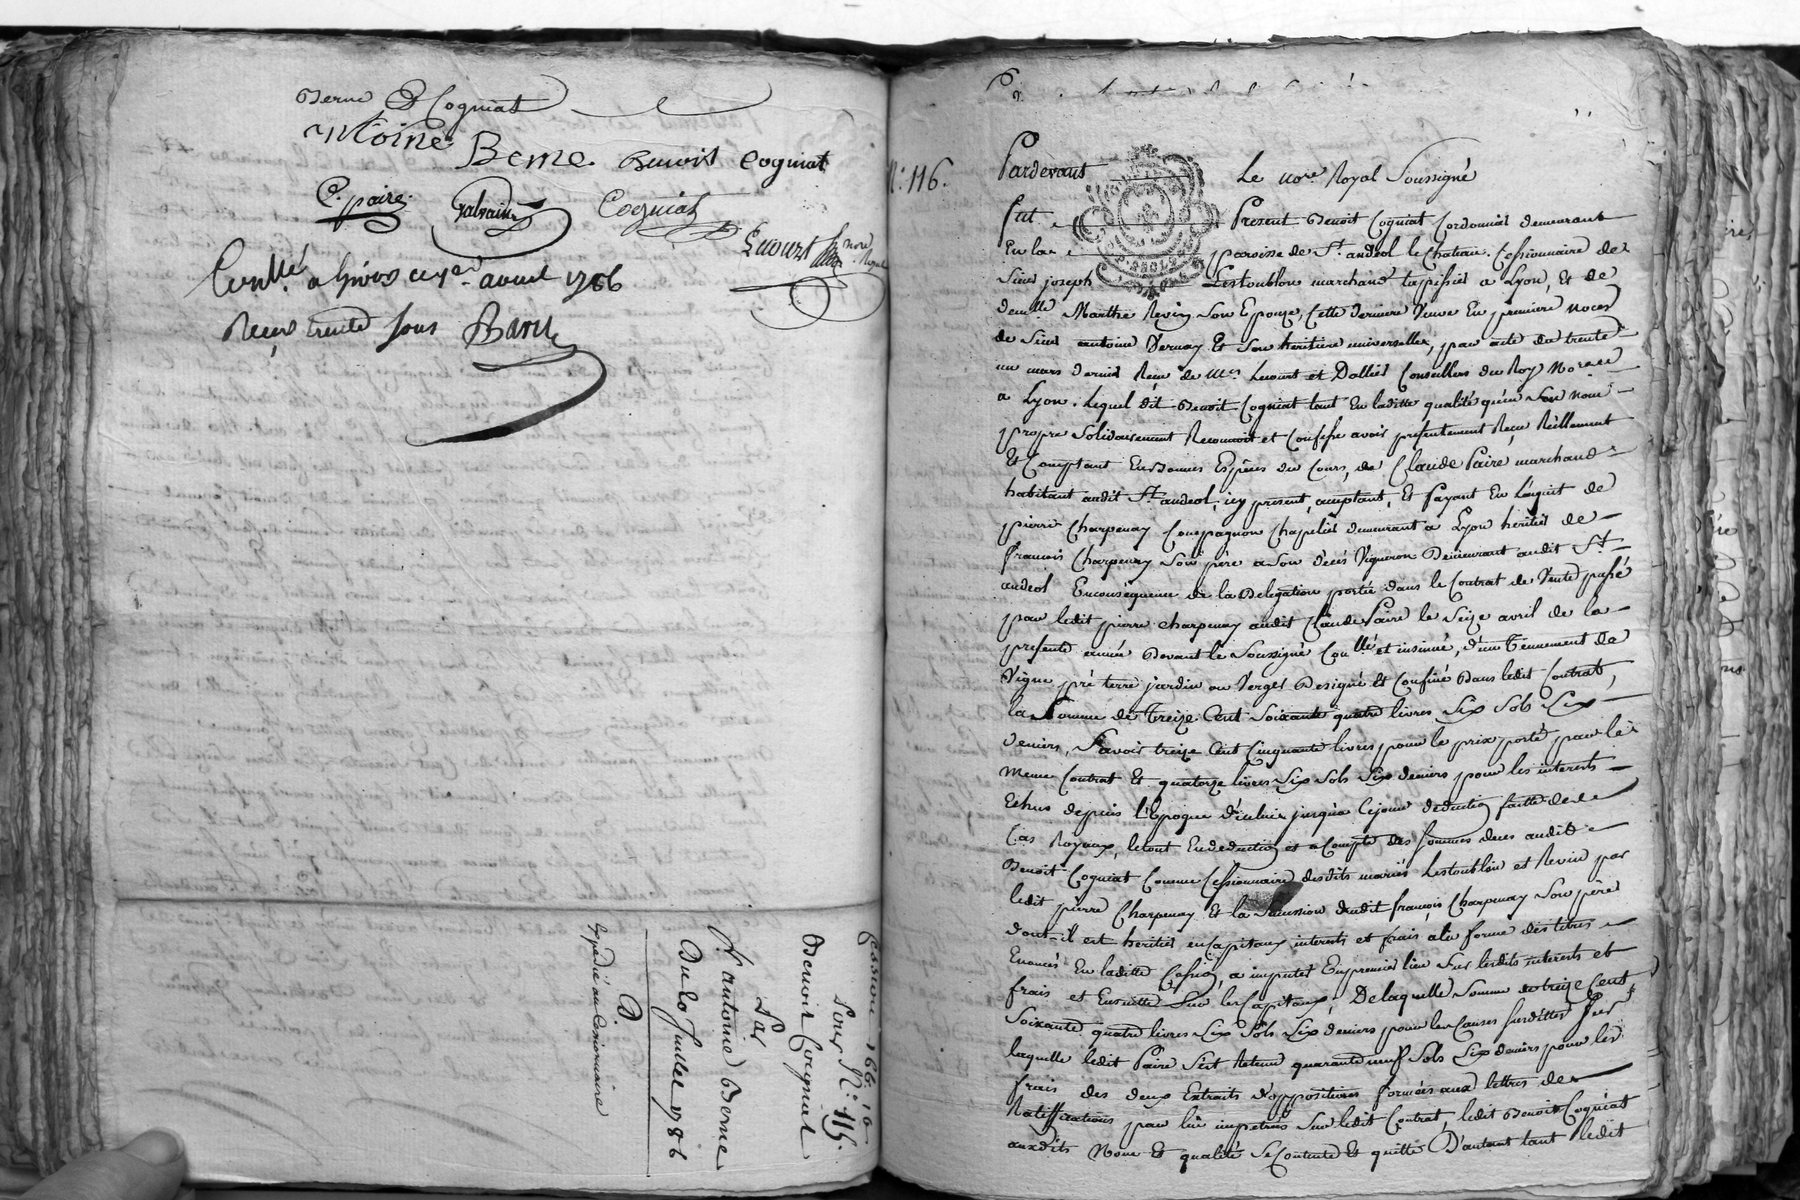 Berne B Cogniat
Antoine Berne Benoit Cogniat
C. paire. Galvain Cogniat
Lecourt nore Royal
Conllé a Givors ce avril 1786
Reçu trente sous Baret
Cession 166 10
pour N.° 115.
Benoit Cogniat
Par
St antoine Berne
Du 10 Juillet 1786
D.
Expédié au Cessionnaire
N.° 116.
Pardevant Le nore. Royal Soussigné
fut Present Benoit Cogniat Cordonnier demeurant
En la paroisse de St. andéol le Chateau. Cessionnaire de
Sieur joseph Lestoublon marchand tapissier a Lyon, Et de
demlle Marthe Revin Son Epouze, Cette derniere Veuve En premiere noces
de Sieur antoine Vernay Et Son heritiere universelle, par acte du trente
un mars dernier Recu de Mes Lecourt et Dallier Conseillers du Roy Nores
a Lyon. Lequel dit Benoit Cogniat tant En laditte qualité qu'en Son nom
propre Solidairement Reconnoit et Confesse avoir presentement Reçu Réellement
Et Comptant En bonnes Espèces du Cours, de Claude Paire marchand
habitant audit St. andeol, icy present, acceptant, Et Payant En l'acquit de
pierre Charpenay Compagnon Chapelier demeurant a Lyon heritier de
francois Charpenay Son père a Son décès Vigneron Demeurant audit St.
andeol En consequence de la Delegation portée dans le Contrat de Vente passé
par ledit pierre Charpenay audit Claude Paire le Seize avril de la
presente année Devant le Soussigné Conllé et insinué, d'un Tennement de
Vigne pré terre jardin ou Verger Designé Et Confiné Dans ledit Contrat,
la Somme de Treize Cent Soixante quatre livres Six Sols Six
deniers, Savoir treize Cent Cinquante livres pour le prix porté par le
meme Contrat Et quatorze livres Six Sols Six deniers pour les interests
Echus depuis l'Epoque d'icelui jusqu'a Cejour deduction faitte de
Cas Royaux, le tout En deduction et a Compte des Sommes dues audit
Benoit Cogniat Comme Cessionnaire desdits mariés Lestoublon et Revin par
ledit pierre Charpenay Et la Succession dudit francois Charpenay Son père
dont-il est heritier en Capitaux interests et frais a la forme des titres
Enoncés En laditte Cession, a imputer En premier lieu Sur lesdits interests et
frais et Ensuitte Sur les Capitaux; De laquelle Somme de treize Cent
Soixante quatre livres Six Sols Six deniers pour les Causes Susdittes Sur
laquelle ledit Paire S'est Retenu quarante neuf Sols Six deniers pour les
frais des deux Extraits d'oppositions formées aux lettres de
Ratiffications par lui impetrées Sur ledit Contrat, ledit Benoit Cogniat
auxdits Noms Et qualité Se Contente Et quitte D'autant tant ledit